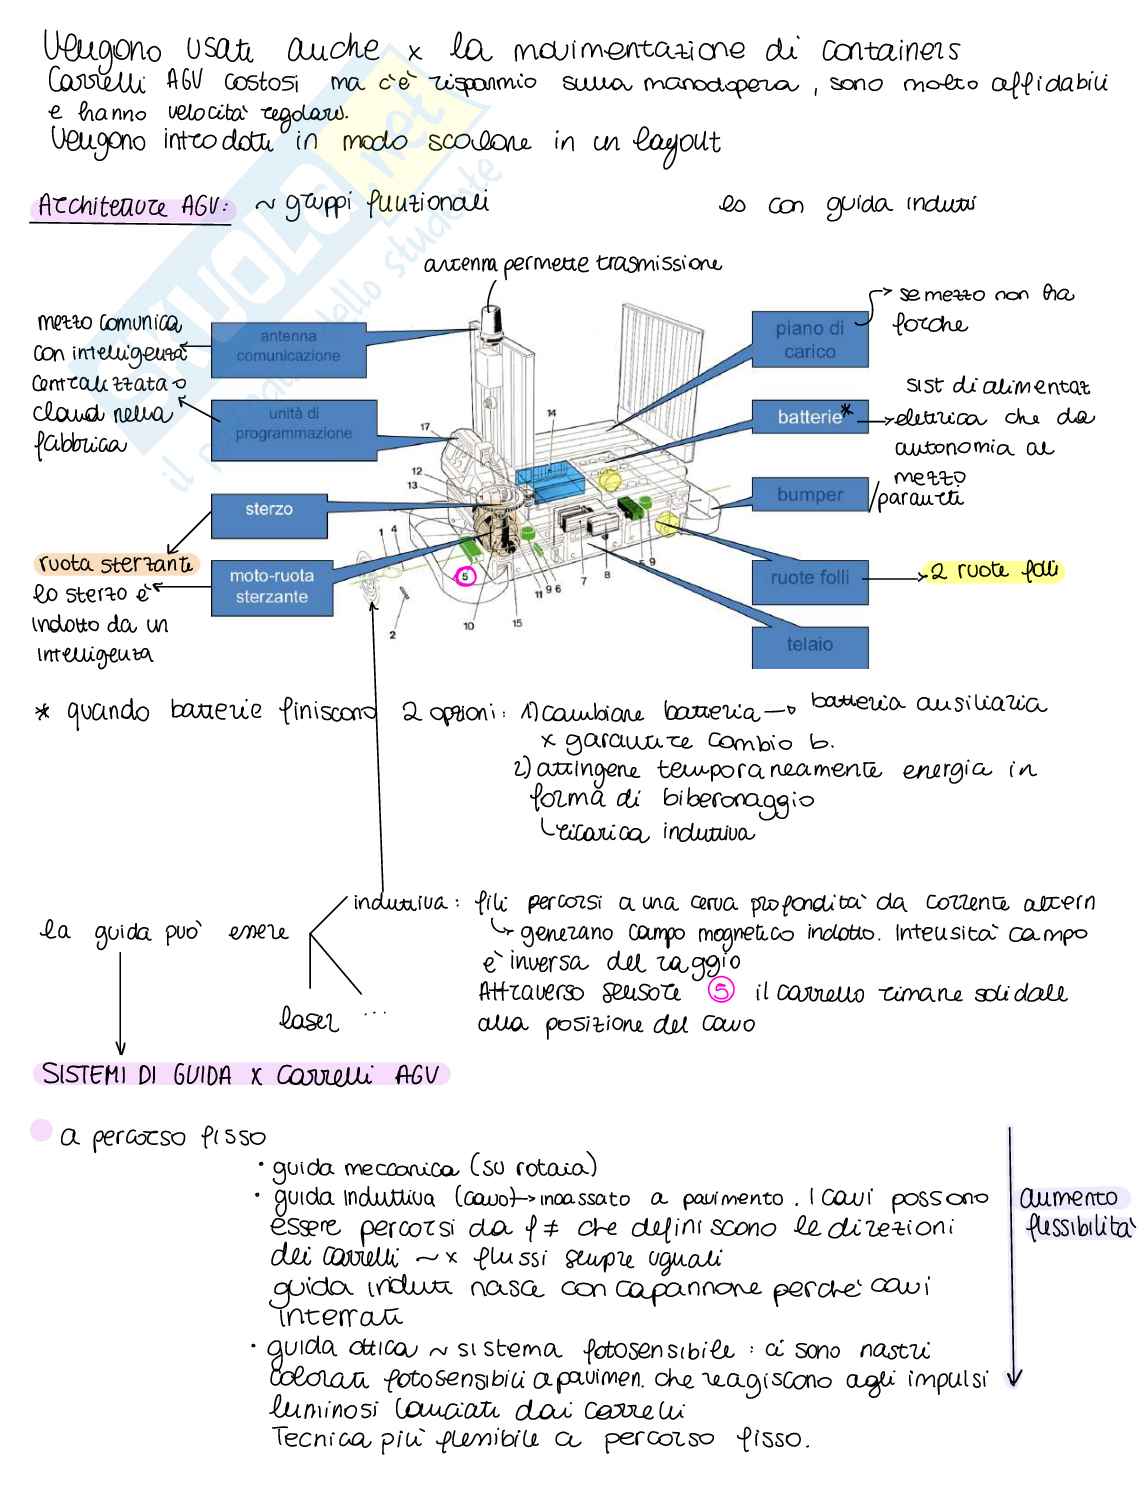 Vengono usati anche x la movimentazione di containers
Carrelli AGV costosi ma c'è risparmio sulla manodopera, sono molto affidabili
e hanno velocità regolare.
Vengono introdotti in modo scalare in un layout
Architetture AGV: ~ gruppi funzionali
es con guida indutti
antenna permette trasmissione
mezzo comunica
con intelligenza
centralizzata o
cloud nella
fabbrica
antenna
comunicazione
unità di
programmazione
sterzo
ruota sterzante
lo sterzo è
indotto da un
intelligenza
moto-ruota
sterzante
piano di
carico
se mezzo non ha
forche
batterie*
sist di alimentaz
elettrica che da
autonomia al
mezzo
bumper
/paraurti
ruote folli
2 ruote folli
telaio
17
14
12
13
1
4
5
2
10
15
11 9 6
7
8
5 9
* quando batterie finiscono 2 opzioni: 1) cambiare batteria → batteria ausiliaria
x garantire cambio b.
2) attingere temporaneamente energia in
forma di biberonaggio
ricarica induttiva
la guida può essere
induttiva: fili percorsi a una certa profondità da corrente altern
generano campo magnetico indotto. Intensità campo
è inversa del raggio
Attraverso sensore 5 il carrello rimane solidale
alla posizione del cavo
laser ...
SISTEMI DI GUIDA x Carrelli AGV
a percorso fisso
• guida meccanica (su rotaia)
• guida induttiva (cavo) → incassato a pavimento. I cavi possono
essere percorsi da f ≠ che definiscono le direzioni
dei carrelli ~ x flussi sempre uguali
guida indutti nasce con capannone perchè cavi
interrati
• guida ottica ~ sistema fotosensibile: ci sono nastri
colorati fotosensibili a pavimen. che reagiscono agli impulsi
luminosi lanciati dai carrelli
Tecnica più flessibile a percorso fisso.
aumento
flessibilità
SKUOLA.net
il portale dello studente